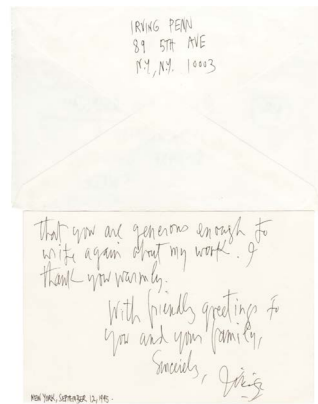 IRVING PENN
89 5TH AVE
N.Y., N.Y. 10003
that you are generous enough to
write again about my work. I
thank you warmly.
With friendly greetings to
you and your family,
Sincerely, Irving
NEW YORK, SEPTEMBER 12, 1995.